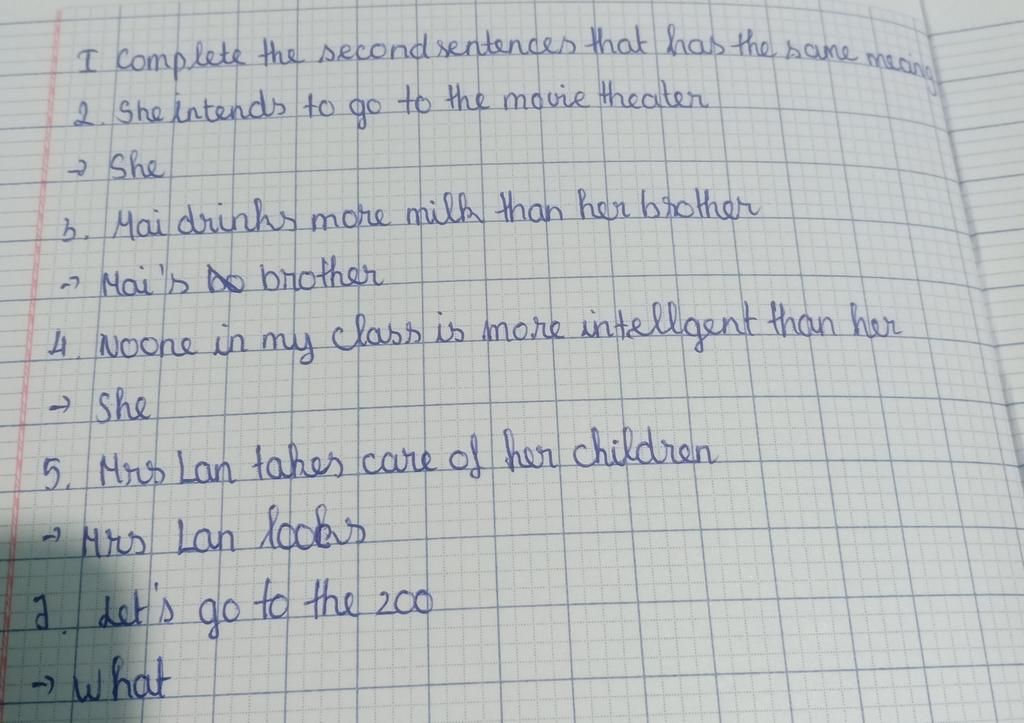 I Complete the second sentences that has the same meaning
2. She intends to go to the movie theater
→ She
3. Mai drinks more milk than her brother
→ Mai's brother
4. Noone in my class is more intellgent than her
→ She
5. Mrs Lan takes care of her children
→ Mrs Lan looks
7. Let's go to the zoo
→ What